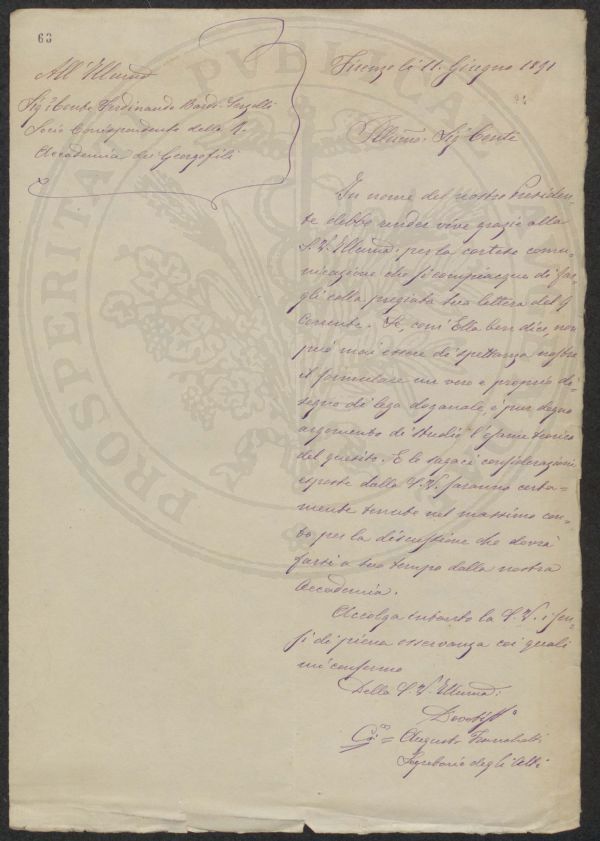 63
All'Illmo
Sig. Conte Ferdinando Bardi Serzelli
Socio Corrispondente della R.
Accademia dei Georgofili
Firenze li 11. Giugno 1891
Illmo. Sig. Conte
In nome del nostro Presiden-
te debbo render vive grazie alla
S. V. Illma. per la cortese comu-
nicazione che si compiacque di far-
gli colla pregiata sua lettera del 9
corrente. Se, com'Ella ben dice, non
può mai essere di spettanza nostra
il formulare un vero e proprio di-
segno di lega doganale, è pur degno
argomento di studio l'esame teorico
del quesito. E le sagaci considerazioni
esposte dalla S. V. saranno certa-
mente tenute nel massimo con-
to per la discussione che dovrà
farsi a suo tempo dalla nostra
Accademia.
Accolga intanto la S. V. i sen-
si di piena osservanza coi quali
mi confermo
Della S. V. Illma:
Devotiss.o
Augusto
Segretario degli Atti
PROSPERITATI PVBLICAE